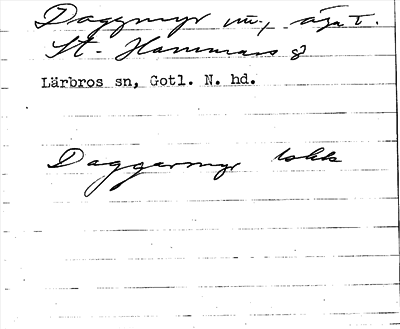 Daggmyr m., äga t.
St. Hammars 8
Lärbros sn, Gotl. N. hd.
Daggarmyr